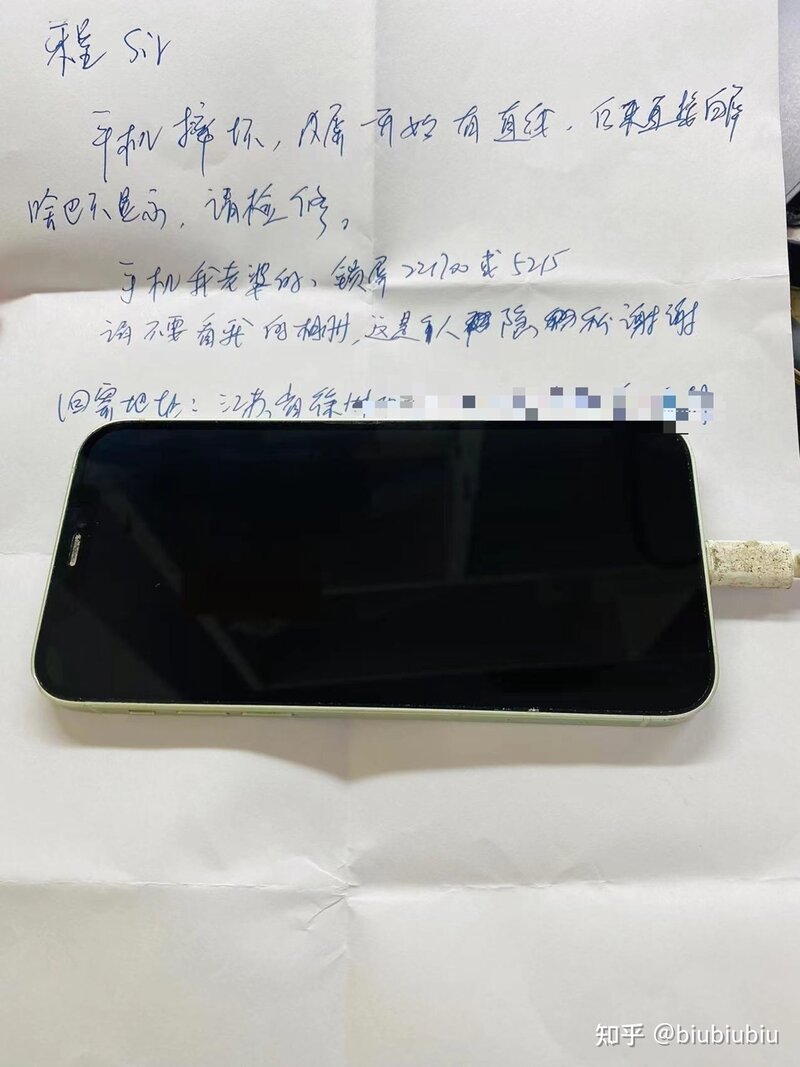 程 Sir
手机摔坏，屏 开始有直线，后来直接白屏
啥也不显示，请检修。
手机我老婆的，锁屏 或 5215
请不要看我的相册，这是个人隐私谢谢
回寄地址：江苏省徐州
知乎 @biubiubiu